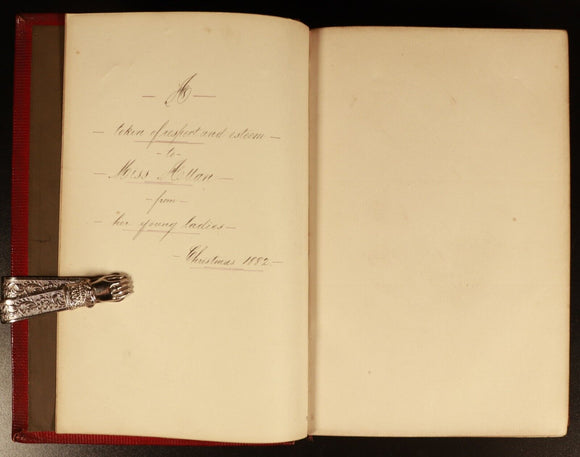 — A —
— token of respect and esteem —
— to —
— Miss —
— from —
— "her young ladies —
— Christmas 1882 —